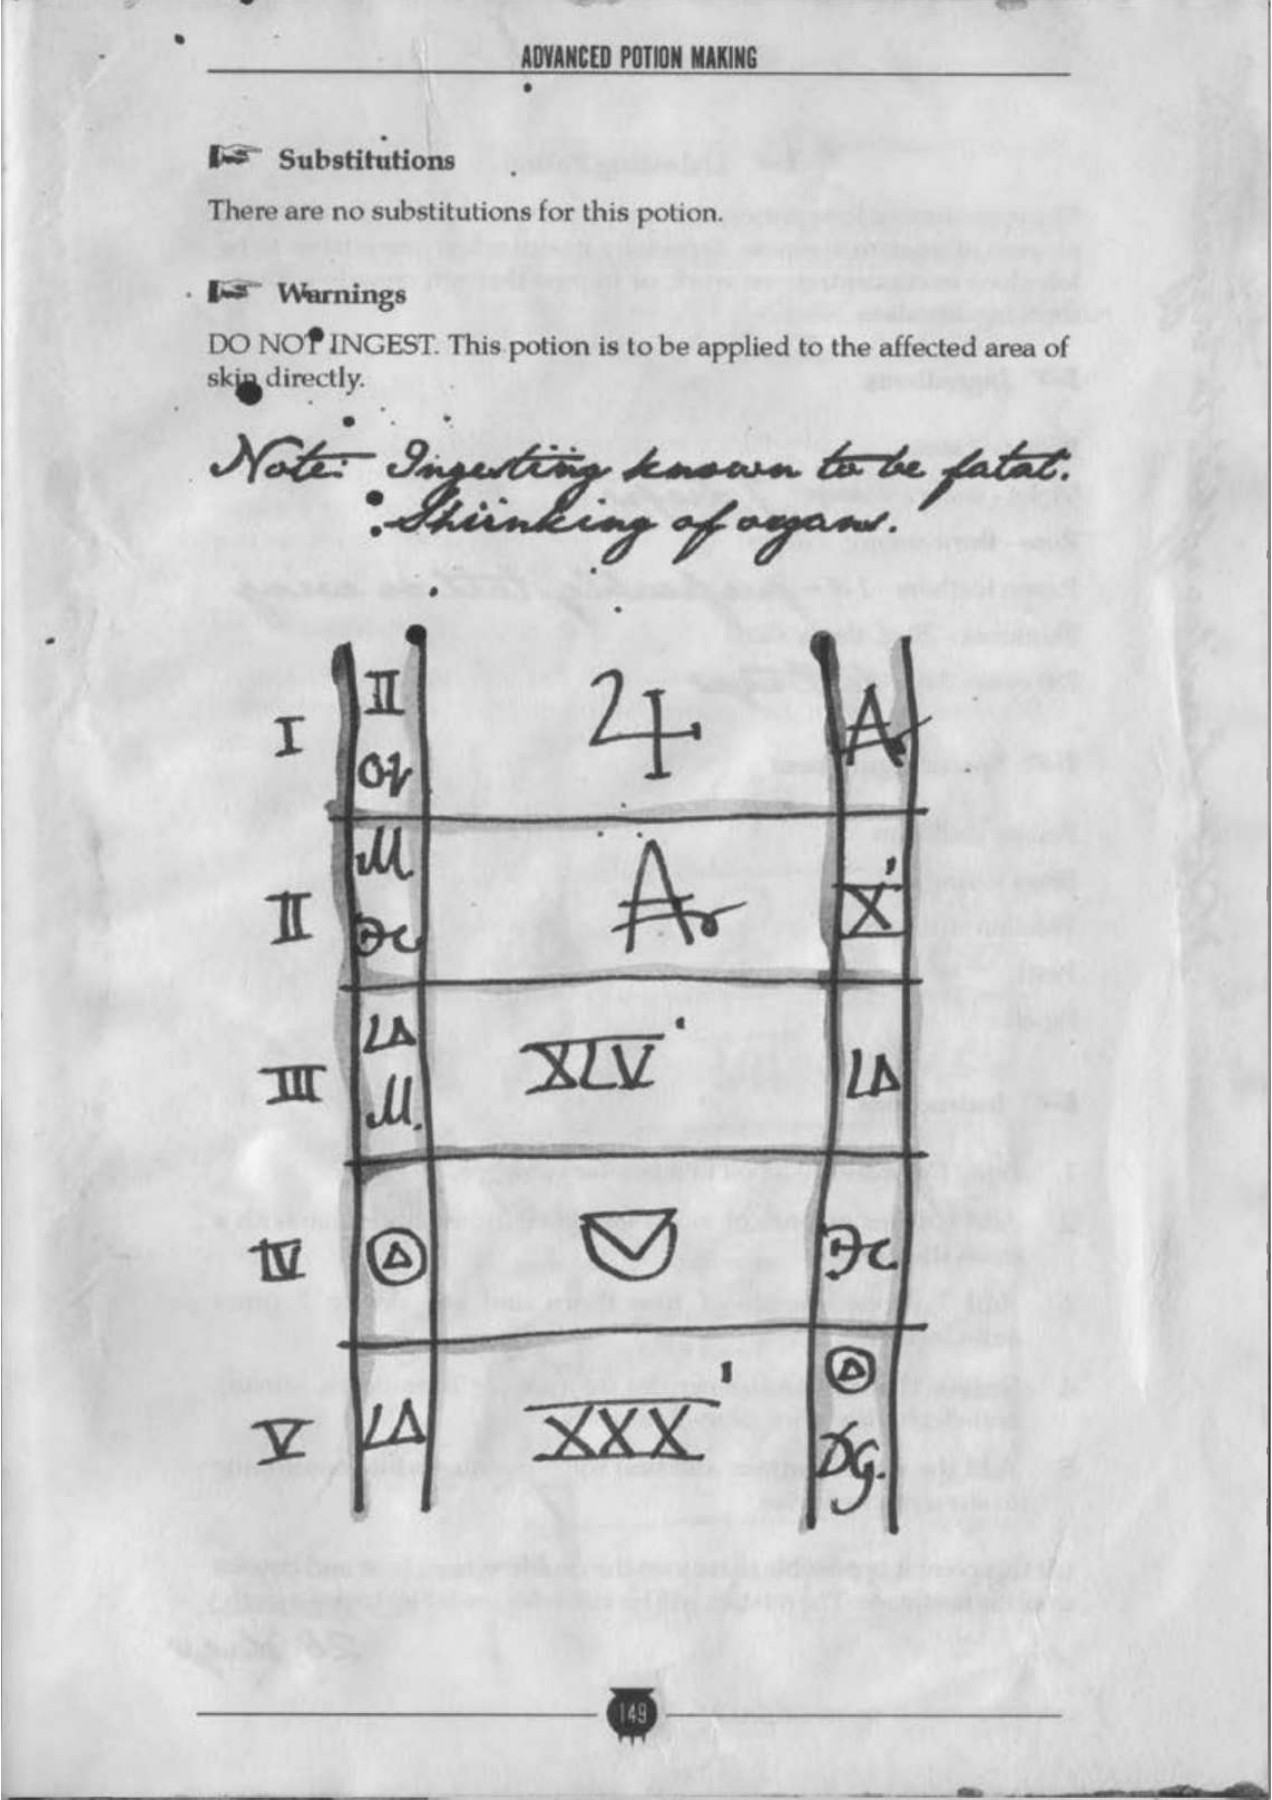 ADVANCED POTION MAKING
Substitutions
There are no substitutions for this potion.
Warnings
DO NOT INGEST. This potion is to be applied to the affected area of
skin directly.
Note: Ingesting known to be fatal.
Shrinking of organs.
I II
II M X
III M. XLV
IV
V XXX
149